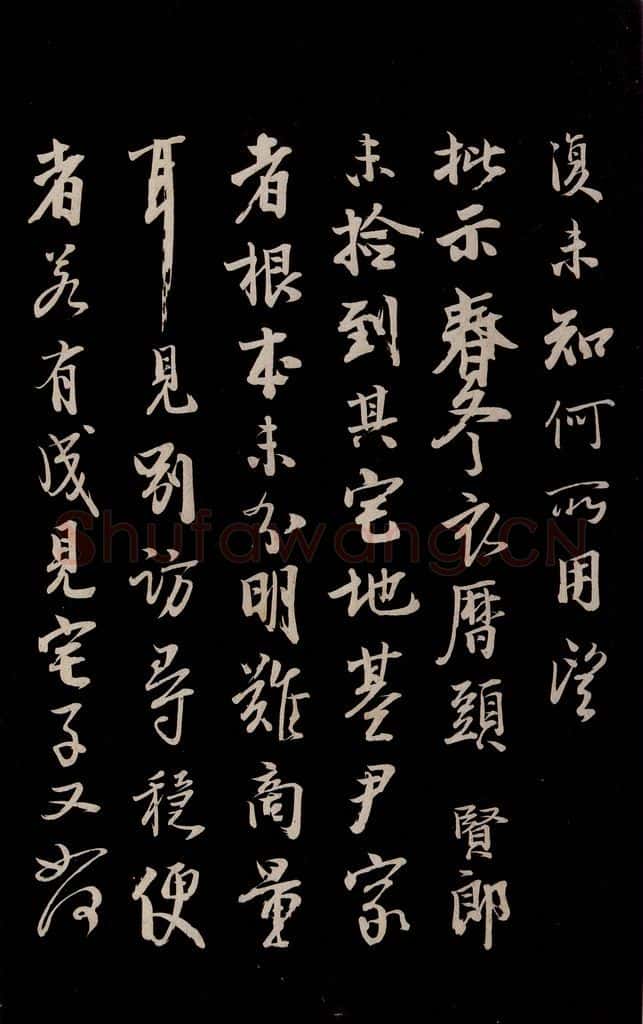 復未知何所用望
批示春冬衣曆頭 賢郎
未拾到其宅地基尹家
者根本未分明難商量
耳見別訪尋穩便
者若有成見宅子又如何
Shufawang.CN